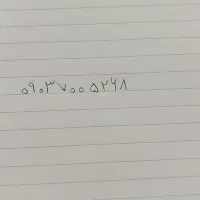 ۰۹۰۳۷۰۰۵۲۶۸